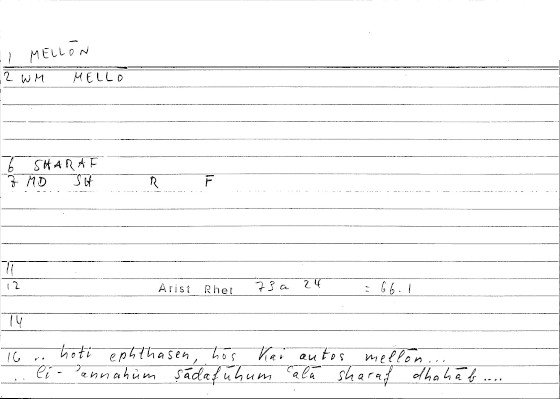 1 MELLŌN
2 WM MELLO
6 SHARAF
7 MD SH R F
11
12 Arist Rhet 73a 24 = 66.1
14
16 .. hoti ephthasen, hōs kai autos mellōn...
.. li-'annahum ṣādafūhum ʿalā sharaf dhahāb....